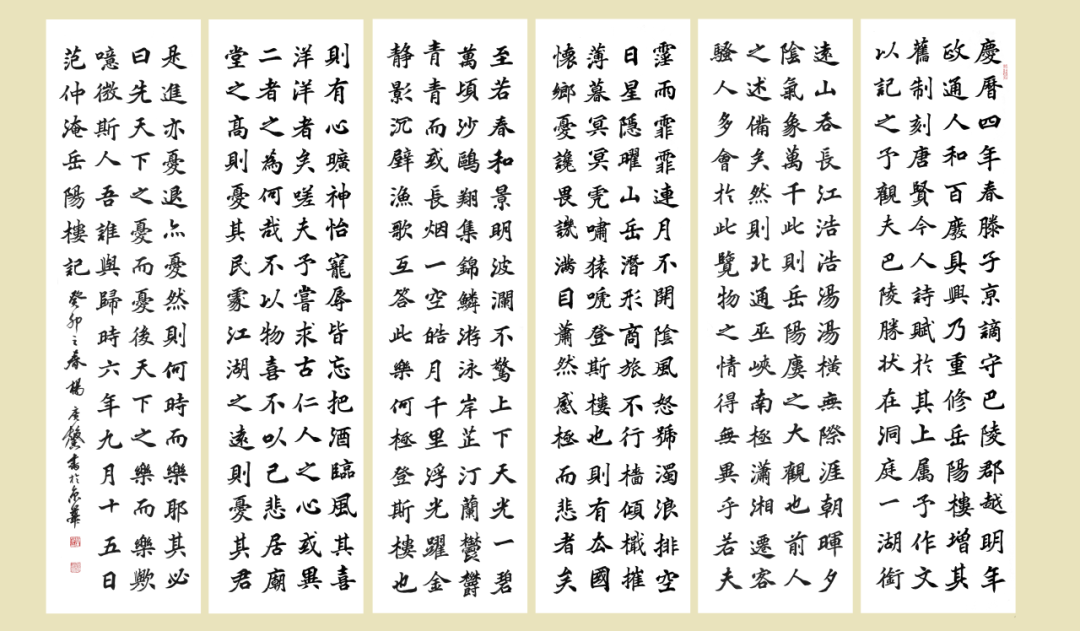 慶曆四年春滕子京謫守巴陵郡越明年
政通人和百廢具興乃重修岳陽樓增其
舊制刻唐賢今人詩賦於其上属予作文
以記之予觀夫巴陵勝狀在洞庭一湖銜
遠山吞長江浩浩湯湯橫無際涯朝暉夕
陰氣象萬千此則岳陽廔之大觀也前人
之述備矣然則北通巫峽南極瀟湘遷客
騷人多會於此覽物之情得無異乎若夫
霪雨霏霏連月不開陰風怒號濁浪排空
日星隱曜山岳潛形商旅不行檣傾檝摧
薄暮冥冥虎嘯猿唬登斯樓也則有去國
懷鄉憂讒畏譏滿目蕭然感極而悲者矣
至若春和景明波瀾不驚上下天光一碧
萬頃沙鷗翔集錦鱗游泳岸芷汀蘭鬱鬱
青青而或長烟一空皓月千里浮光躍金
静影沉璧漁歌互答此樂何極登斯樓也
則有心曠神怡寵辱皆忘把酒臨風其喜
洋洋者矣嗟夫予嘗求古仁人之心或異
二者之為何哉不以物喜不以己悲居廟
堂之高則憂其民處江湖之遠則憂其君
是進亦憂退亦憂然則何時而樂耶其必
曰先天下之憂而憂後天下之樂而樂歟
噫微斯人吾誰與歸時六年九月十五日
范仲淹岳陽樓記 癸卯之春楊馨書於京華